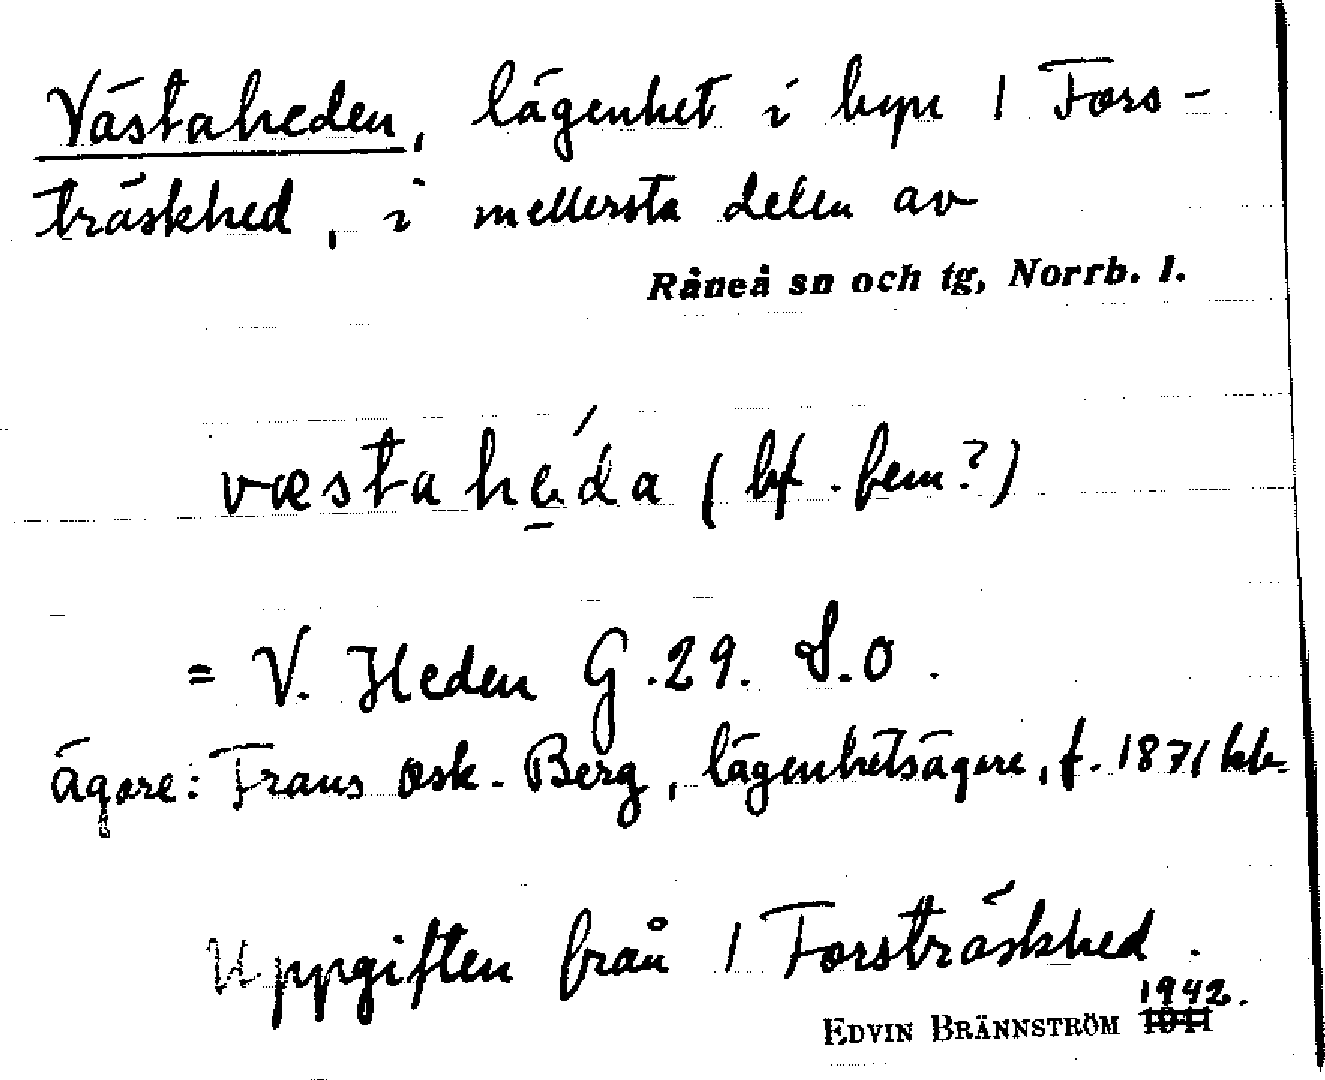 Västaheden, lägenhet i byn 1 Fors-
träskhed, i mellersta delen av
Råneå sn och tg, Norrb. l.
væstahe̱´da (bf. fem?)
= V. Heden G.29. S.O.
ägare: Frans Osk. Berg, lägenhetsägare, f. 1871
Uppgiften från 1 Forsträskhed.
1942.
EDVIN BRÄNNSTRÖM 1941